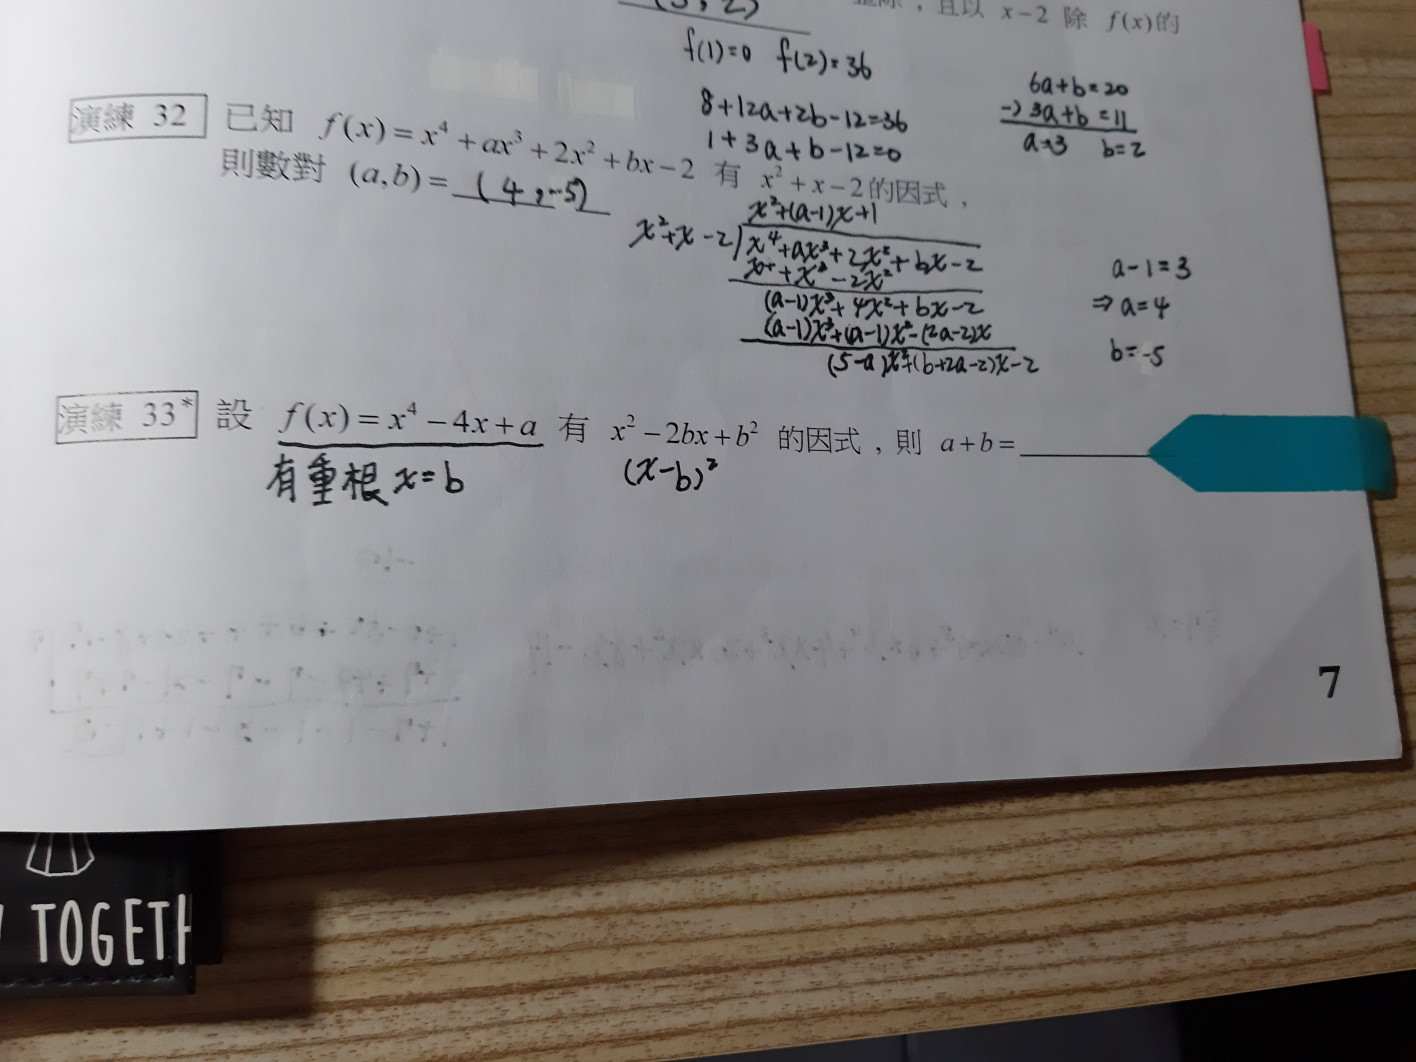 (3, 2)
整除，且以 x-2 除 f(x)的
f(1)=0 f(2)=36
8+12a+2b-12=36
1+3a+b-12=0
6a+b=20
-) 3a+b=11
a=3 b=2
演練 32 已知 f(x)=x⁴+ax³+2x²+bx-2 有 x²+x-2的因式，
則數對 (a,b)= (4,-5)
x²+(a-1)x+1
x²+x-2)x⁴+ax³+2x²+bx-2
x⁴+x³-2x²
(a-1)x³+4x²+bx-2
(a-1)x³+(a-1)x²-(2a-2)x
(5-a)x²+(b+2a-2)x-2
a-1=3
⇒a=4
b=-5
演練 33* 設 f(x)=x⁴-4x+a 有 x²-2bx+b² 的因式，則 a+b=
有重根 x=b (x-b)²
7
TOGETH